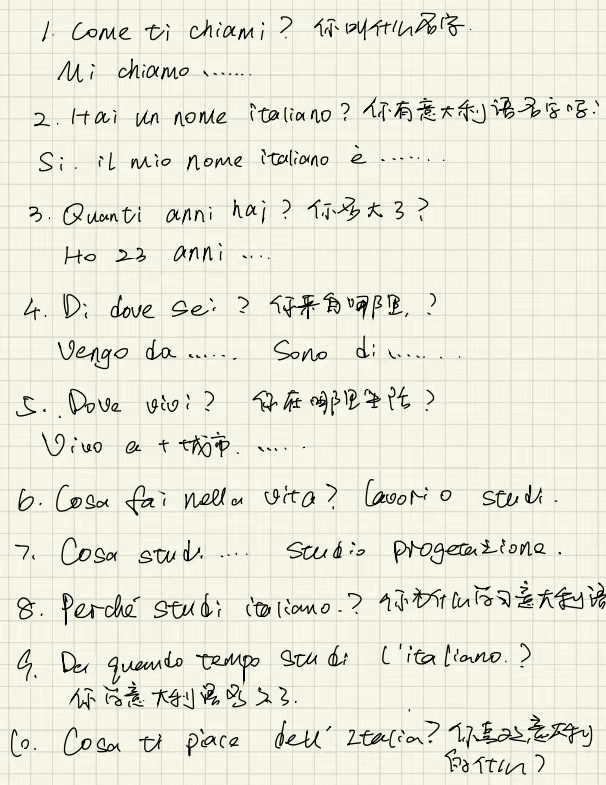 1. Come ti chiami? 你叫什么名字.
Mi chiamo .......
2. Hai un nome italiano? 你有意大利语名字吗?
Si. il mio nome italiano è .......
3. Quanti anni hai? 你多大了?
Ho 23 anni ....
4. Di dove sei? 你来自哪里.?
Vengo da ...... Sono di .......
5. Dove vivi? 你在哪里生活?
Vivo a + 城市. .....
6. Cosa fai nella vita? Lavori o studi.
7. Cosa studi .... studio progetazione.
8. Perché studi italiano.? 你为什么学习意大利语
9. Da quando tempo studi l'italiano.?
你学意大利语多久了.
10. Cosa ti piace dell' Italia? 你喜欢意大利
的什么?